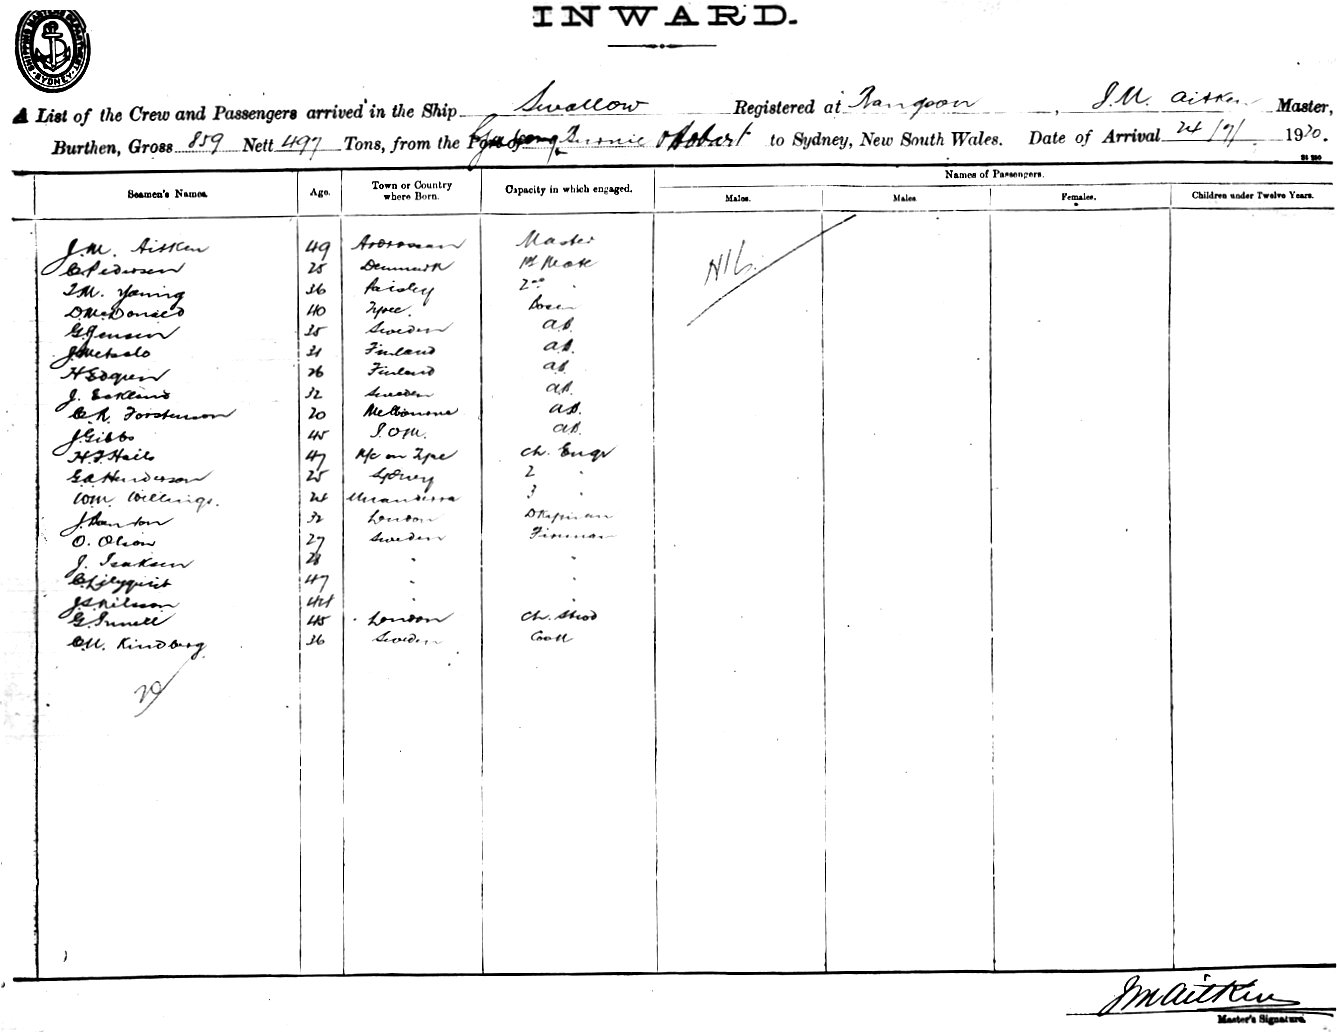 INWARD.
SHIPPING MASTERS DEPARTMENT SYDNEY
A List of the Crew and Passengers arrived in the Ship Swallow Registered at Rangoon, J.M. Aitken Master,
Burthen, Gross 859 Nett 497 Tons, from the Port of Burnie & Hobart to Sydney, New South Wales. Date of Arrival 24/7/ 1920.
Names of Passengers.
Seamen's Names. Age. Town or Country where Born. Capacity in which engaged. Males. Males. Females. Children under Twelve Years.
J.M. Aitken 49 Ardrossan Master
C Pedersen 25 Denmark 1st Mate
J.M. Young 36 Paisley 2nd "
D McDonald 40 Tyree. Bosun
G Jensen 35 Sweden AB.
31 Finland AB.
H Edgren 26 Finland AB
J. Eeklund 32 Sweden AB.
C.R. Forstenson 20 Melbourne AB.
J Gibbs 45 I.O.M. AB.
H.J. Hails 47 N/c on Tyne Ch. Engr
G.A Henderson 25 Sydney 2 "
Wm. Willings. 24 3 "
32 London
O. Olson 27 Sweden Fireman
J. Isaksen 28 " "
C Liljquist 47 " "
J.S. Nilsson 44 " "
G. 45 London Ch. Stwd
C.U. Kindberg 36 Sweden Cook
20
Nil.
JM Aitken
Master's Signature.